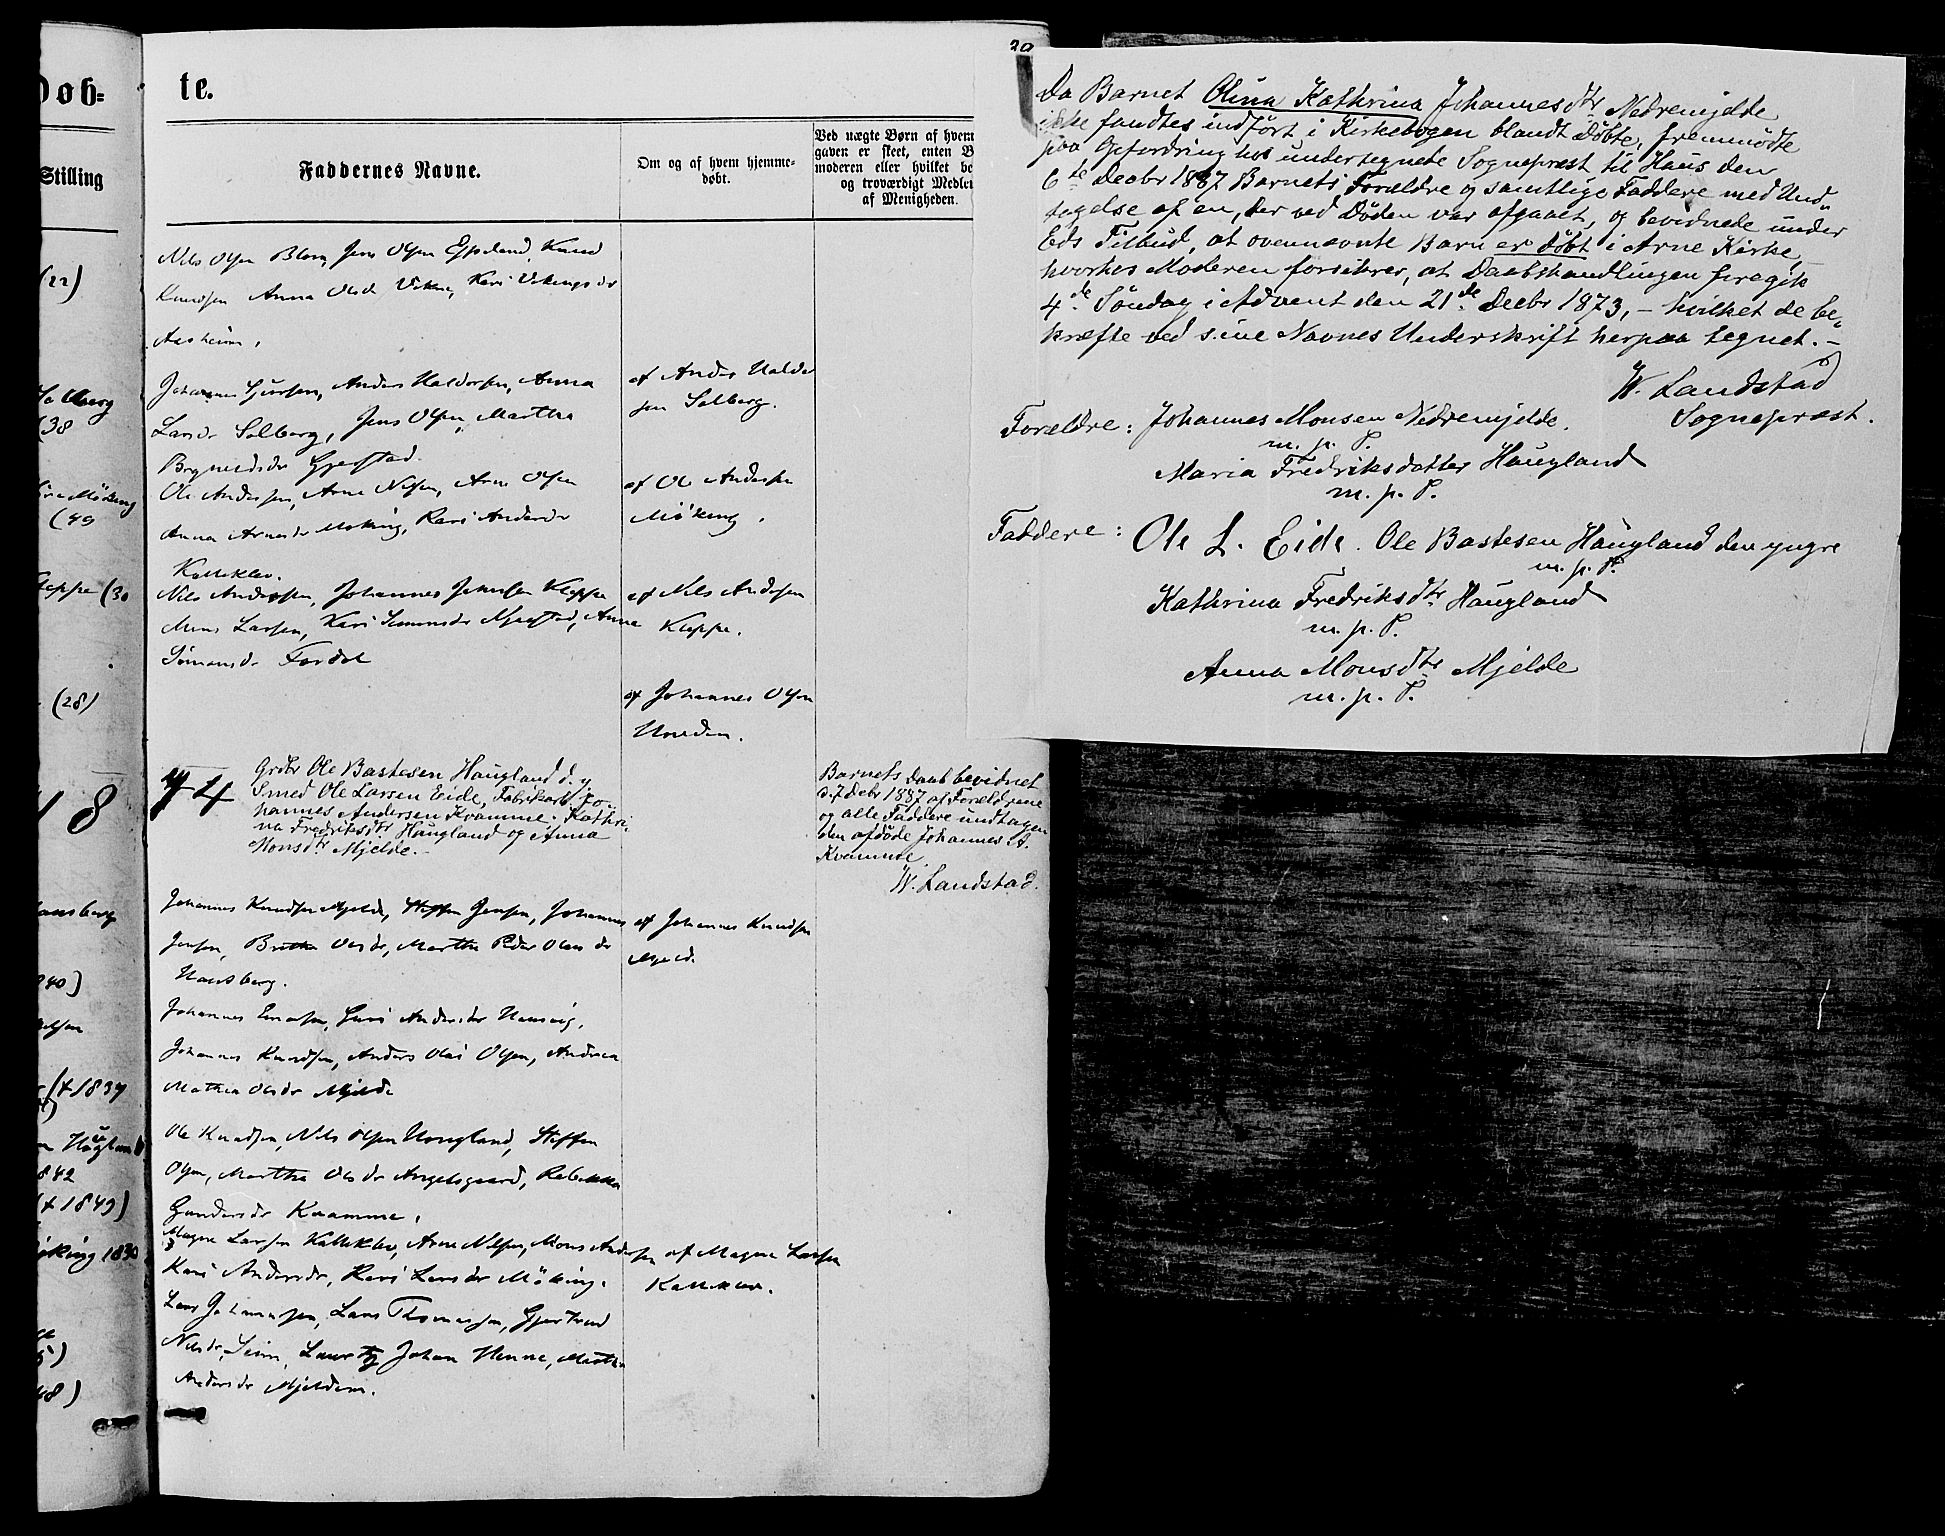 Döb=
te.
Stilling
Faddernes Navne.
Om og af hvem hjemme-
døbt.
Ved uægte Børn af hvem
gaven er skeet, enten B
moderen eller hvilket be
og troværdigt Medle
af Menigheden.
(22)
Nils Olsen Blom, Jens Olsen Espeland, Knud
Knudsen Anna Olsdr Viken, Kari Vikingsdr
Aasheim.
(38
Johannes Sjursen, Anders Haldorsen, Anna
Larsdr Solberg, Jens Olsen, Martha
Brynildsdr Gjerstad.
af Anders Haldor
sen Solberg.
(49
Ole Andersen, Arne Nilsen, Arne Olsen
Anna Arnesdr Möking, Kari Andersdr
Kalleklev.
af Ole Andersen
Möking.
Kleppe (30
Nils Andersen, Johannes Jensen Kleppe
Mons Larsen, Kari Simonsdr Mjelstad, Anna
Simonsdr Fardal
af Nils Andersen
Kleppe.
(28)
af Johannes Olsen
8
4
Grdbr Ole Bastesen Haugland d. y
Smed Ole Larsen Eide, Fabrikarb Jo-
hannes Andersen Kvamme. Kathri-
na Fredriksdtr Haugland og Anna
Monsdtr Mjelde.-
Barnets Daab bevidnet
d. 7 Decbr 1887 af Forældrene
og alle Faddere undtagen
den afdøde Johannes A.
Kvamme.
W. Landstad.
Johannes Knudsen Mjelde, Steffen Jensen, Johannes
Jensen, Britha Olsdr, Martha Peder Olsens dr
Hansberg.
af Johannes Knudsen
Mjeld.
940)
Johannes Knudsen, Anders Olai Olsen, Andrea
Mathea Olsdr Mjelde
(* 1837
Ole Knudsen, Nils Olsen Hougland, Steffen
Olsen, Martha Olsdr Angelsgaard, Rebekka
Gundersdr Kvamme.
842
(* 1849)
Magne Larsen Kalleklev, Arne Nilsen, Mons Andersen
Kari Andersdr, Kari Larsdr Möking.
af Magne Larsen
Kalleklev.
Möking 1830
Lars Johannesen, Lars Thomassen, Gjertrud
Nilsdr, Seim, Lauritz Johan Henne, Martha
Andersdr Mjeldem.
5)
48)
20
Da Barnet Olina Kathrina Johannesdtr Nedremjelde
ikke fandtes indført i Kirkebogen blandt Døbte, fremmødte
paa Opfordring hos undertegnede Sognepræst til Haus den
6te Decbr 1887 Barnets Forældre og samtlige Faddere med Und-
tagelse af en, der ved Døden var afgaaet, og bevidnede under
Eds Tilbud, at ovennævnte Barn er døbt i Arne Kirke,
hvorhos Moderen forsikrer, at Daabshandlingen foregik
4de Søndag i Advent den 21de Decbr 1873, - hvilket de be-
kræfte ved sine Navnes Underskrift herpaa tegnet. -
W. Landstad
Sognepræst.
Forældre: Johannes Monsen Nedremjelde.
m. p. P.
Maria Fredriksdatter Haugland
m. p. P.
Faddere: Ole L. Eide. Ole Bastesen Haugland den yngre
m. p. P.
Kathrina Fredriksdtr Haugland
m. p. P.
Anna Monsdtr Mjelde
m. p. P.